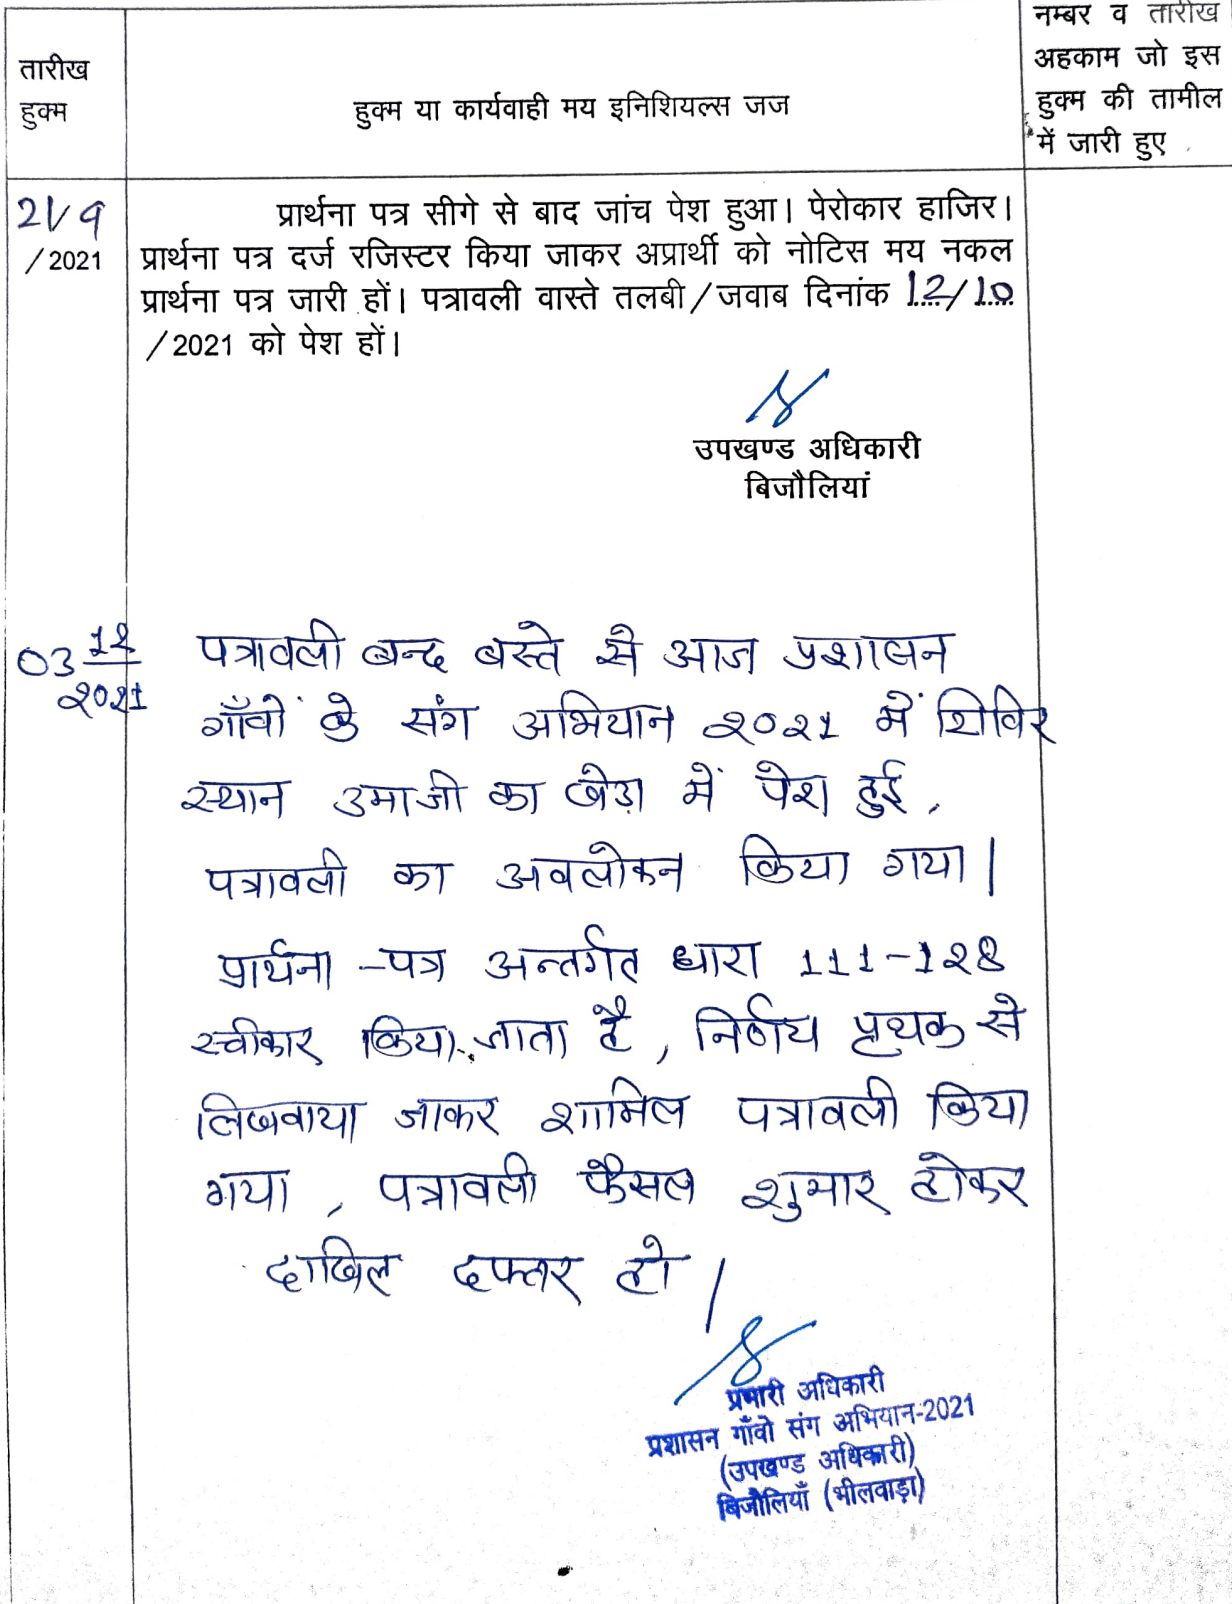 तारीख
हुक्म
हुक्म या कार्यवाही मय इनिशियल्स जज
नम्बर व तारीख
अहकाम जो इस
हुक्म की तामील
में जारी हुए
21/9
/2021
प्रार्थना पत्र सीगे से बाद जांच पेश हुआ। पेरोकार हाजिर।
प्रार्थना पत्र दर्ज रजिस्टर किया जाकर अप्रार्थी को नोटिस मय नकल
प्रार्थना पत्र जारी हों। पत्रावली वास्ते तलबी/जवाब दिनांक 12/10
/2021 को पेश हों।
उपखण्ड अधिकारी
बिजौलियां
03 12
2021
पत्रावली बन्द बस्ते से आज प्रशासन
गाँवों के संग अभियान 2021 में शिविर
स्थान उमाजी का खेड़ा में पेश हुई,
पत्रावली का अवलोकन किया गया।
प्रार्थना-पत्र अन्तर्गत धारा 111-128
स्वीकार किया जाता है, निर्णय पृथक से
लिखवाया जाकर शामिल पत्रावली किया
गया, पत्रावली फैसल शुमार होकर
दाखिल दफ्तर हो।
प्रभारी अधिकारी
प्रशासन गाँवो संग अभियान-2021
(उपखण्ड अधिकारी)
बिजौलियाँ (भीलवाड़ा)